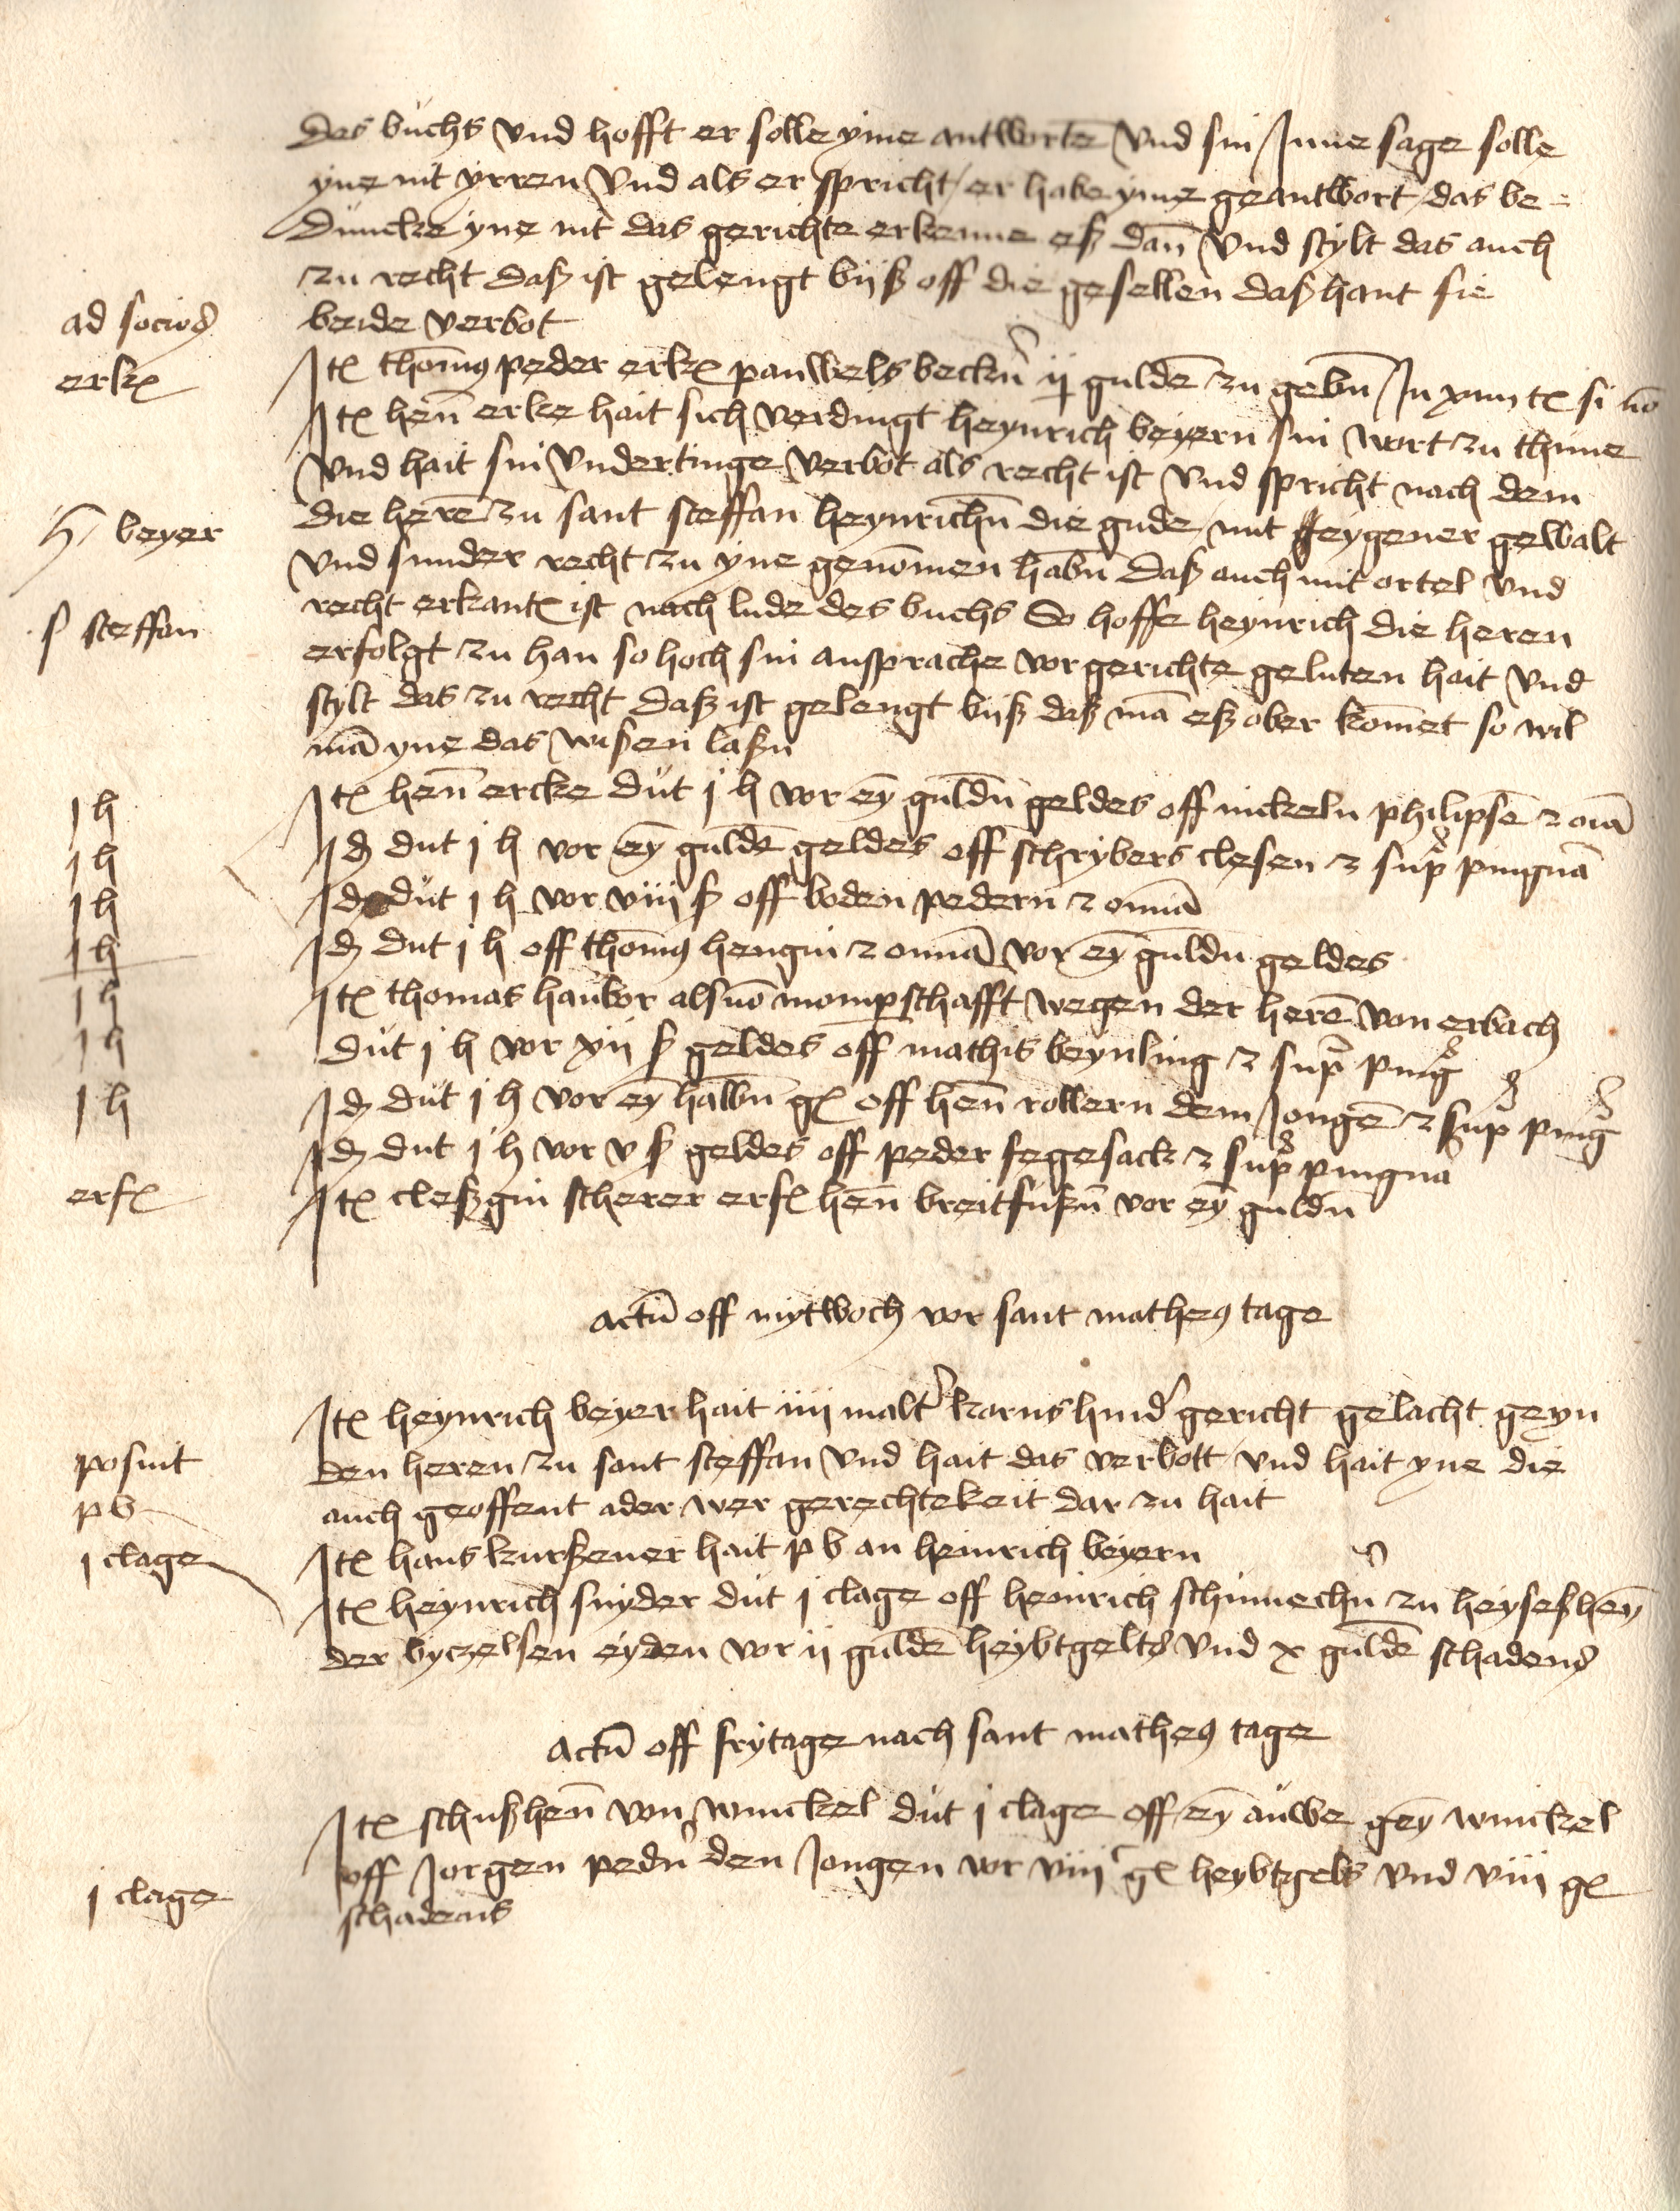 des buchs vnd hofft er solle yme antworte͞ vnd sin Inne sage solle
yne nit yrren vnd als er spricht / er habe yme geantwort / das be=
duncke yne nit das gerichte erkenne eß dan͞ vnd stylt das auch
zu recht daß ist gelengt biiß off die gesellen daß hant sie
ad socios
beide verbot
erk
It thom͞s peder erk pauwels becku͞ ij gulde͞ zu gebn͞ In xiiii t si no͞
It hen͞ erke hait sich verdingt heynrich beyern sin wort zu thune
vnd hait sin vndertinge verbot als recht ist vnd spricht nach dem
h beyer
die here͞ zu sant steffan heynrichn͞ die gude / mit eygener gewalt
vnd sunder recht zu yne geno͞men habn͞ daß auch mit ortel vnd
s steffan
recht erkant ist nach lude des buchs So hoffe heynrich die heren
erfolgt zu han so hoch sin ansprache vor gerichte geluten hait vnd
stylt das zu recht daß ist gelengt biiß daß ma͞ eß ober komet so wil
ma͞ yne das wisen laßn
j h
It hen͞ ercke dut j h vor ey͞ guldn͞ geldes off nickeln philipse͞ z oia͞
j h
Id dut j h vor ey͞ gulde͞ geldes off schrybers clesen z sup͞ pingna͞
j h
Id dut j h vor viii ß off boden pedern z omia͞
j h
Id dut j h off thom͞s hengin z omia͞ vor ey͞ guldn͞ geldes
j h
It thomas hanbor als vo͞ mompschafft wegen der here͞ von erbach
j h
dut j h vor xii ß geldes off mathis beynling z sup͞ ping
j h
Id dut j h vor ey͞ halbn͞ g off hen͞ rollern dem Jonge͞ z sup͞ ping
Id dut j h vor v ß geldes off peder fegesack z sup͞ pingna
erf
It cleßgin scherer erf hen͞ breitfußn͞ vor ey͞ guldn͞
Actu͞ off mytwoch vor sant matheus tage
It heynrich beyer hait iiii malt͛ korns hind͛ gericht gelacht geyn
posuit
den heren zu sant steffan vnd hait das verbott / vnd hait yne die
p b
auch geoffent ader wer gerechtekeit dar zu hait
j clage
It hans kurßener hait p b an heinrich beyern
It heynrich snyder dut j clage off heinrich schumechn͛ zu heyseßhey͞
der byczelsen eyden vor ii gulde͞ heybtgelts vnd x gulde͞ schadens
Actu͞ off frytage nach sant matheus tage
It schußhen͞ von winckel dut j clage off ey͞ auwe gey͞ winckel
off Jorgen pedn͛ den Jongen vor viii g heybtgelts vnd viii g
j clage
schadens